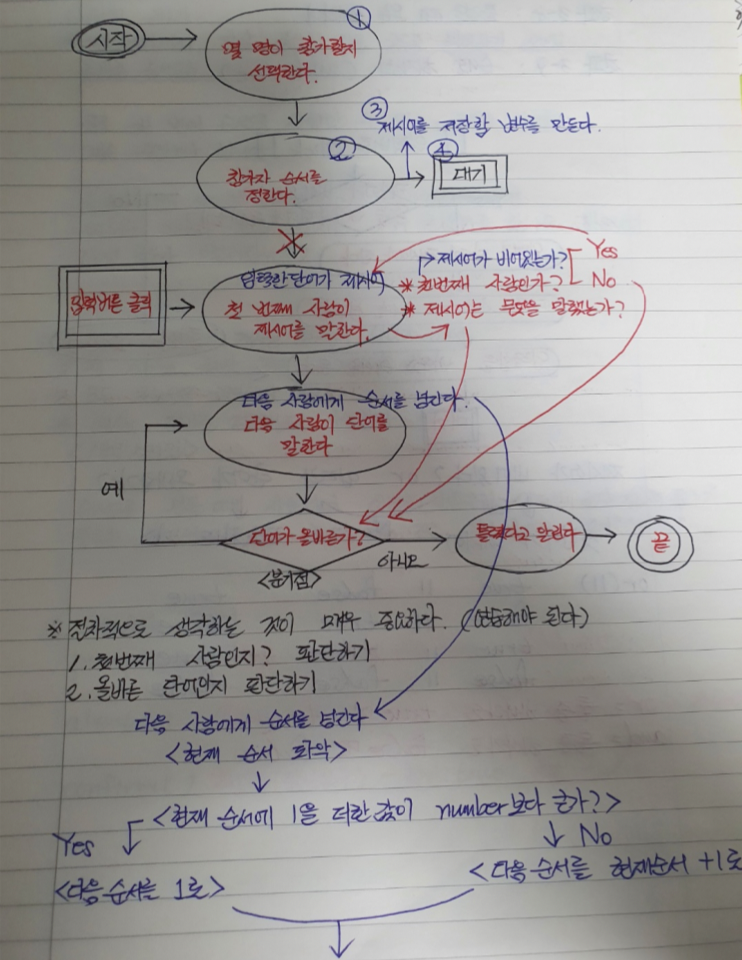 시작
①
몇 명이 참가할지
선택한다.
③
제시어를 저장할 변수를 만든다.
②
참가자 순서를
정한다.
④
대기
입력버튼 클릭
입력한 단어가 제시어
첫 번째 사람이
제시어를 말한다.
제시어가 비어있는가?
Yes
* 첫번째 사람인가?
No
* 제시어는 무엇을 말했는가?
다음 사람에게 순서를 넘긴다.
다음 사람이 단어를
말한다
예
단어가 올바른가?
아니오
<분기점>
틀렸다고 알린다
끝
※ 절차적으로 생각하는 것이 매우 중요하다. (연습해야 된다)
1. 첫번째 사람인지? 판단하기
2. 올바른 단어인지 판단하기
다음 사람에게 순서를 넘긴다
<현재 순서 파악>
<현재 순서에 1을 더한 값이 number보다 큰가?>
Yes
No
<다음 순서를 1로>
<다음 순서를 현재순서 +1로